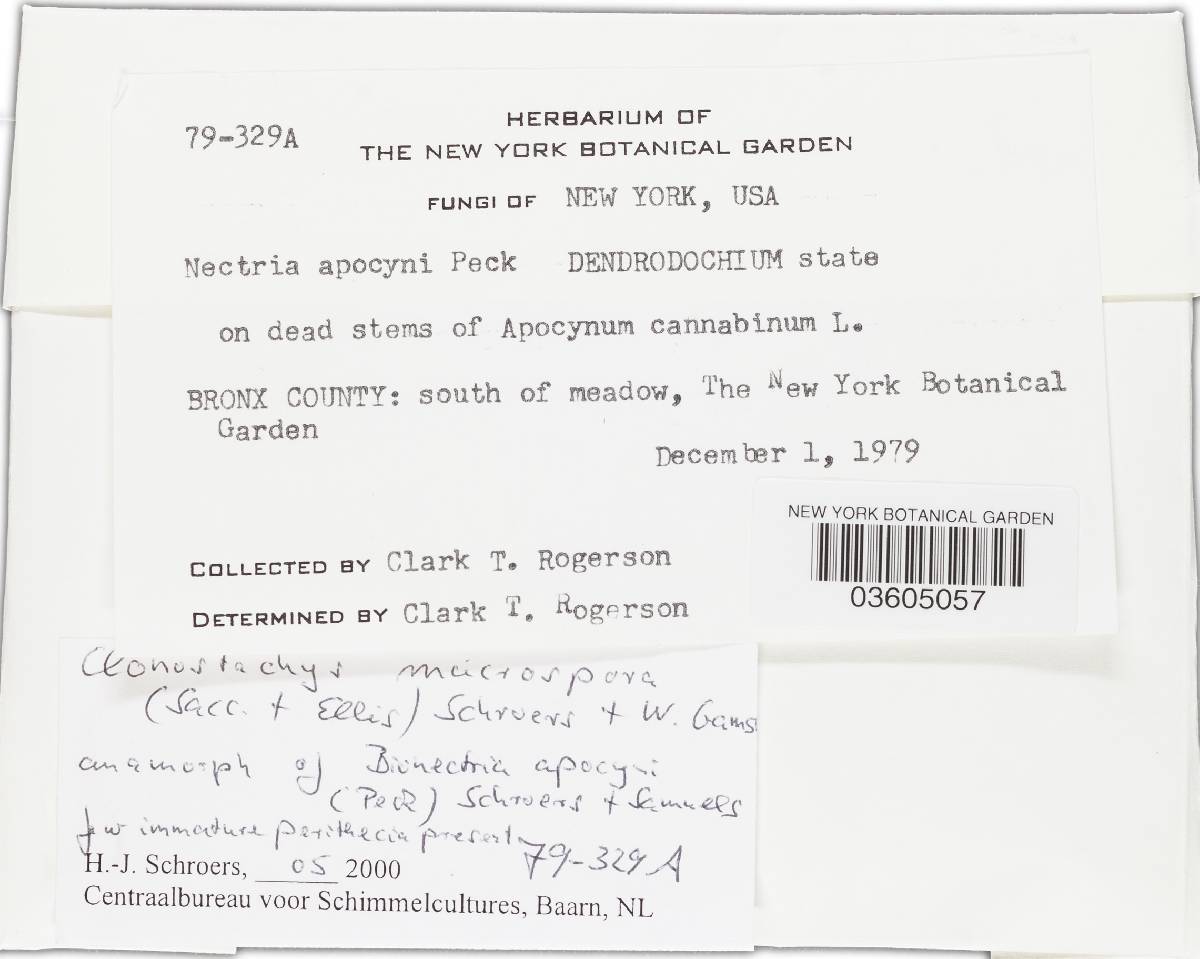 79-329A
HERBARIUM OF
THE NEW YORK BOTANICAL GARDEN
FUNGI OF NEW YORK, USA
Nectria apocyni Peck DENDRODOCHIUM state
on dead stems of Apocynum cannabinum L.
BRONX COUNTY: south of meadow, The New York Botanical
Garden
December 1, 1979
NEW YORK BOTANICAL GARDEN
03605057
COLLECTED BY Clark T. Rogerson
DETERMINED BY Clark T. Rogerson
Clonostachys macrospora
(Sacc. + Ellis) Schroers + W. Gams
anamorph of Bionectria apocyni
(Peck) Schroers + Samuels
few immature perithecia present
79-329 A
H.-J. Schroers, 05 2000
Centraalbureau voor Schimmelcultures, Baarn, NL